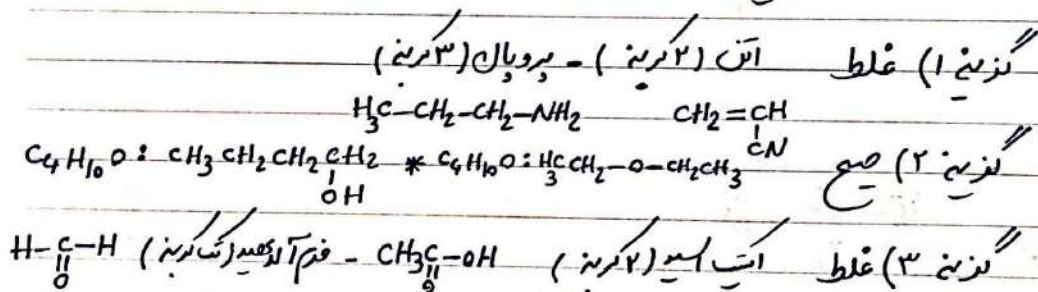 گزینه ۱) غلط اتن (۲ کربنه) - پروپان (۳ کربنه)
H3C-CH2-CH2-NH2 CH2=CH
CN
گزینه ۲) صحیح C4H10O : CH3CH2CH2CH2 * C4H10O : H3CCH2-O-CH2CH3
OH
گزینه ۳) غلط اتیک اسید (۲ کربنه) CH3C-OH - فرم آلدهید (تک کربنه) H-C-H
O O